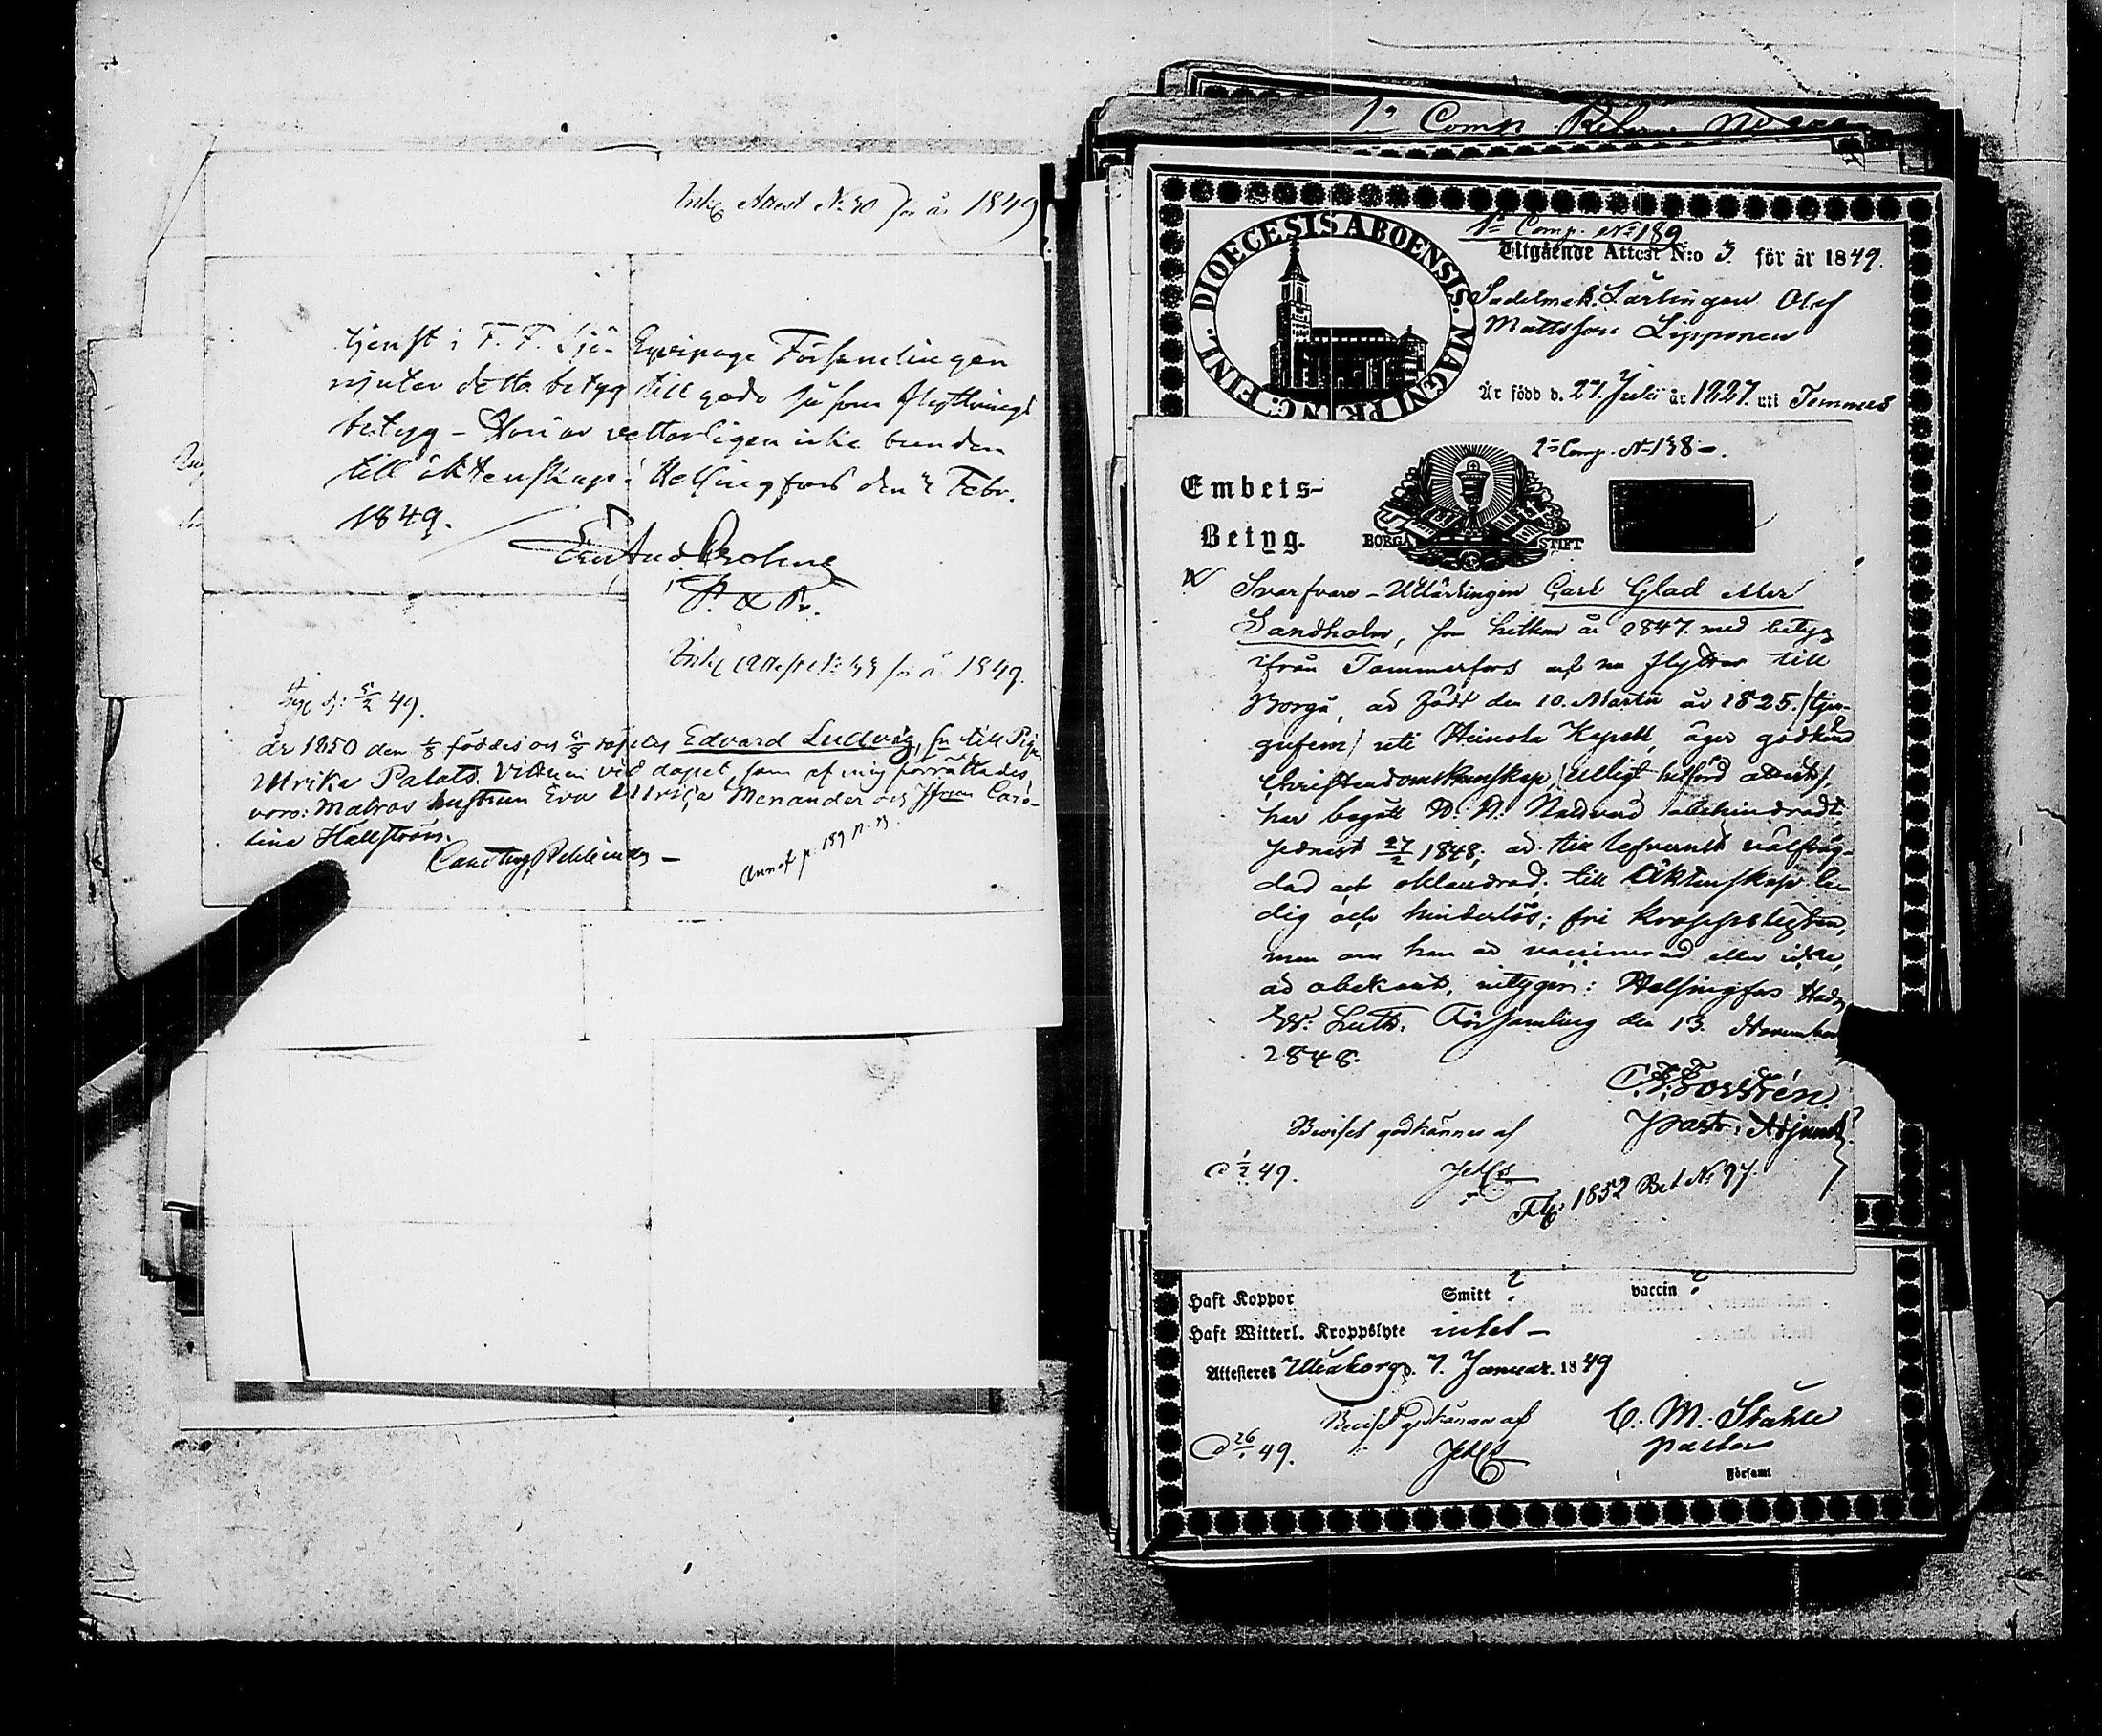 Attest No 30 för år 1849
tjenst i F. F. Sjö-Eqvipage Församlingen
njuter detta betyg till godo så som flyttnings
betyg – Hon är vetterligen icke bunden
till äktenskap: Helsingfors den Febr.
1849.
P. & Pr.
för år 1849.
49.
år 1850 den föddes och döptes Edvard Ludvig, son till Pigan
Ulrika Palats. Vittnen vid dopet, som af mig förrättades,
voro: Matros hustrun Eva Ulrika Menander och Caro-
lina Hällström.
Annot p: 189 n. 23
1a Comp.
1a Comp. No 189
FINL. DIOECESIS ABOENSIS. MAGNI PRINC.
Utgående Attest N:o 3. för år 1849.
Sadelmak. Lärlingen Olof
Mattsson Lipponen
Är född d. 27. Julii år 1827. uti Temmes
2a Comp. No 138 –.
Embets-
Betyg.
BORGÅ STIFT
Svarfvare-Utlärlingen Carl Glad eller
Sandholm, som hitkom år 1847. med betyg
ifrån Tammerfors af nu flyttar till
Borgå, är född den 10. Martii år 1825. /tju-
gufem/ uti Heinola Kapell, äger godkänd
Christendomskunskap, /enligt hitförd attest/,
har begått H. H. Nattvard obehindradt,
sednast 27/2 1848; är till lefvernet välfräj-
dad och oklandrad; till Äktenskap le-
dig och hinderlös; fri kroppslyten,
men om han är vaccinerad eller icke,
är obekant, intygar: Helsingfors Stads
Ev: Luth: Församling den 13. November
1848.
Forstén.
Past: Adjunkt.
Beviset godkännes af
d 1/2 49.
Flg: 1852 Bet No 97.
Haft Koppor Smitt ? vaccin ?
Haft Witterl. Kroppslyte intet –
Attesteres Uleåborg d. 7. Januar. 1849
Beviset godkännes af
C. M. Ståhle
pastor
d 26/1 49.
i Församl